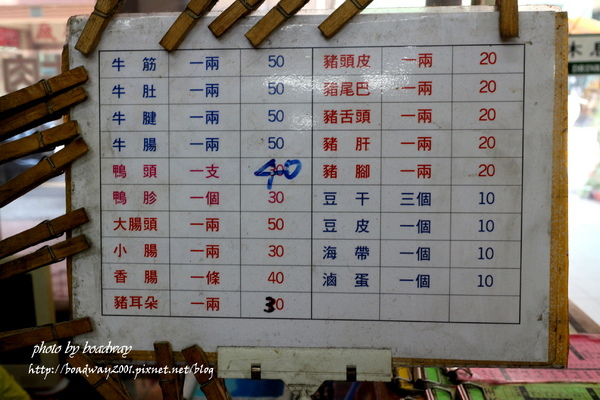 牛筋 一兩 50 豬頭皮 一兩 20
牛肚 一兩 50 豬尾巴 一兩 20
牛腱 一兩 50 豬舌頭 一兩 20
牛腸 一兩 50 豬肝 一兩 20
鴨頭 一支 40 豬腳 一兩 20
鴨胗 一個 30 豆干 三個 10
大腸頭 一兩 50 豆皮 一個 10
小腸 一兩 30 海帶 一個 10
香腸 一條 40 滷蛋 一個 10
豬耳朵 一兩 30
photo by boadway
http://boadway2001.pixnet.net/blog